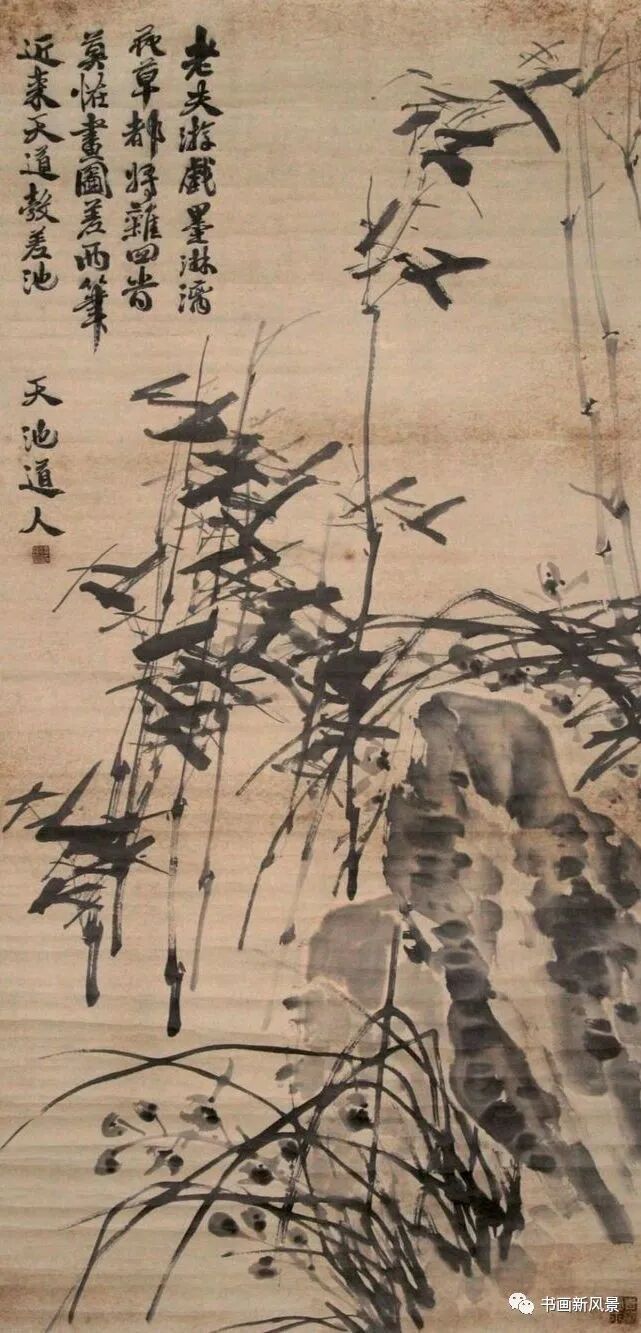 老夫游戲墨淋漓
花草都將雜四昔
莫恠畫圖差兩筆
近來天道彀差池
天池道人
书画新风景